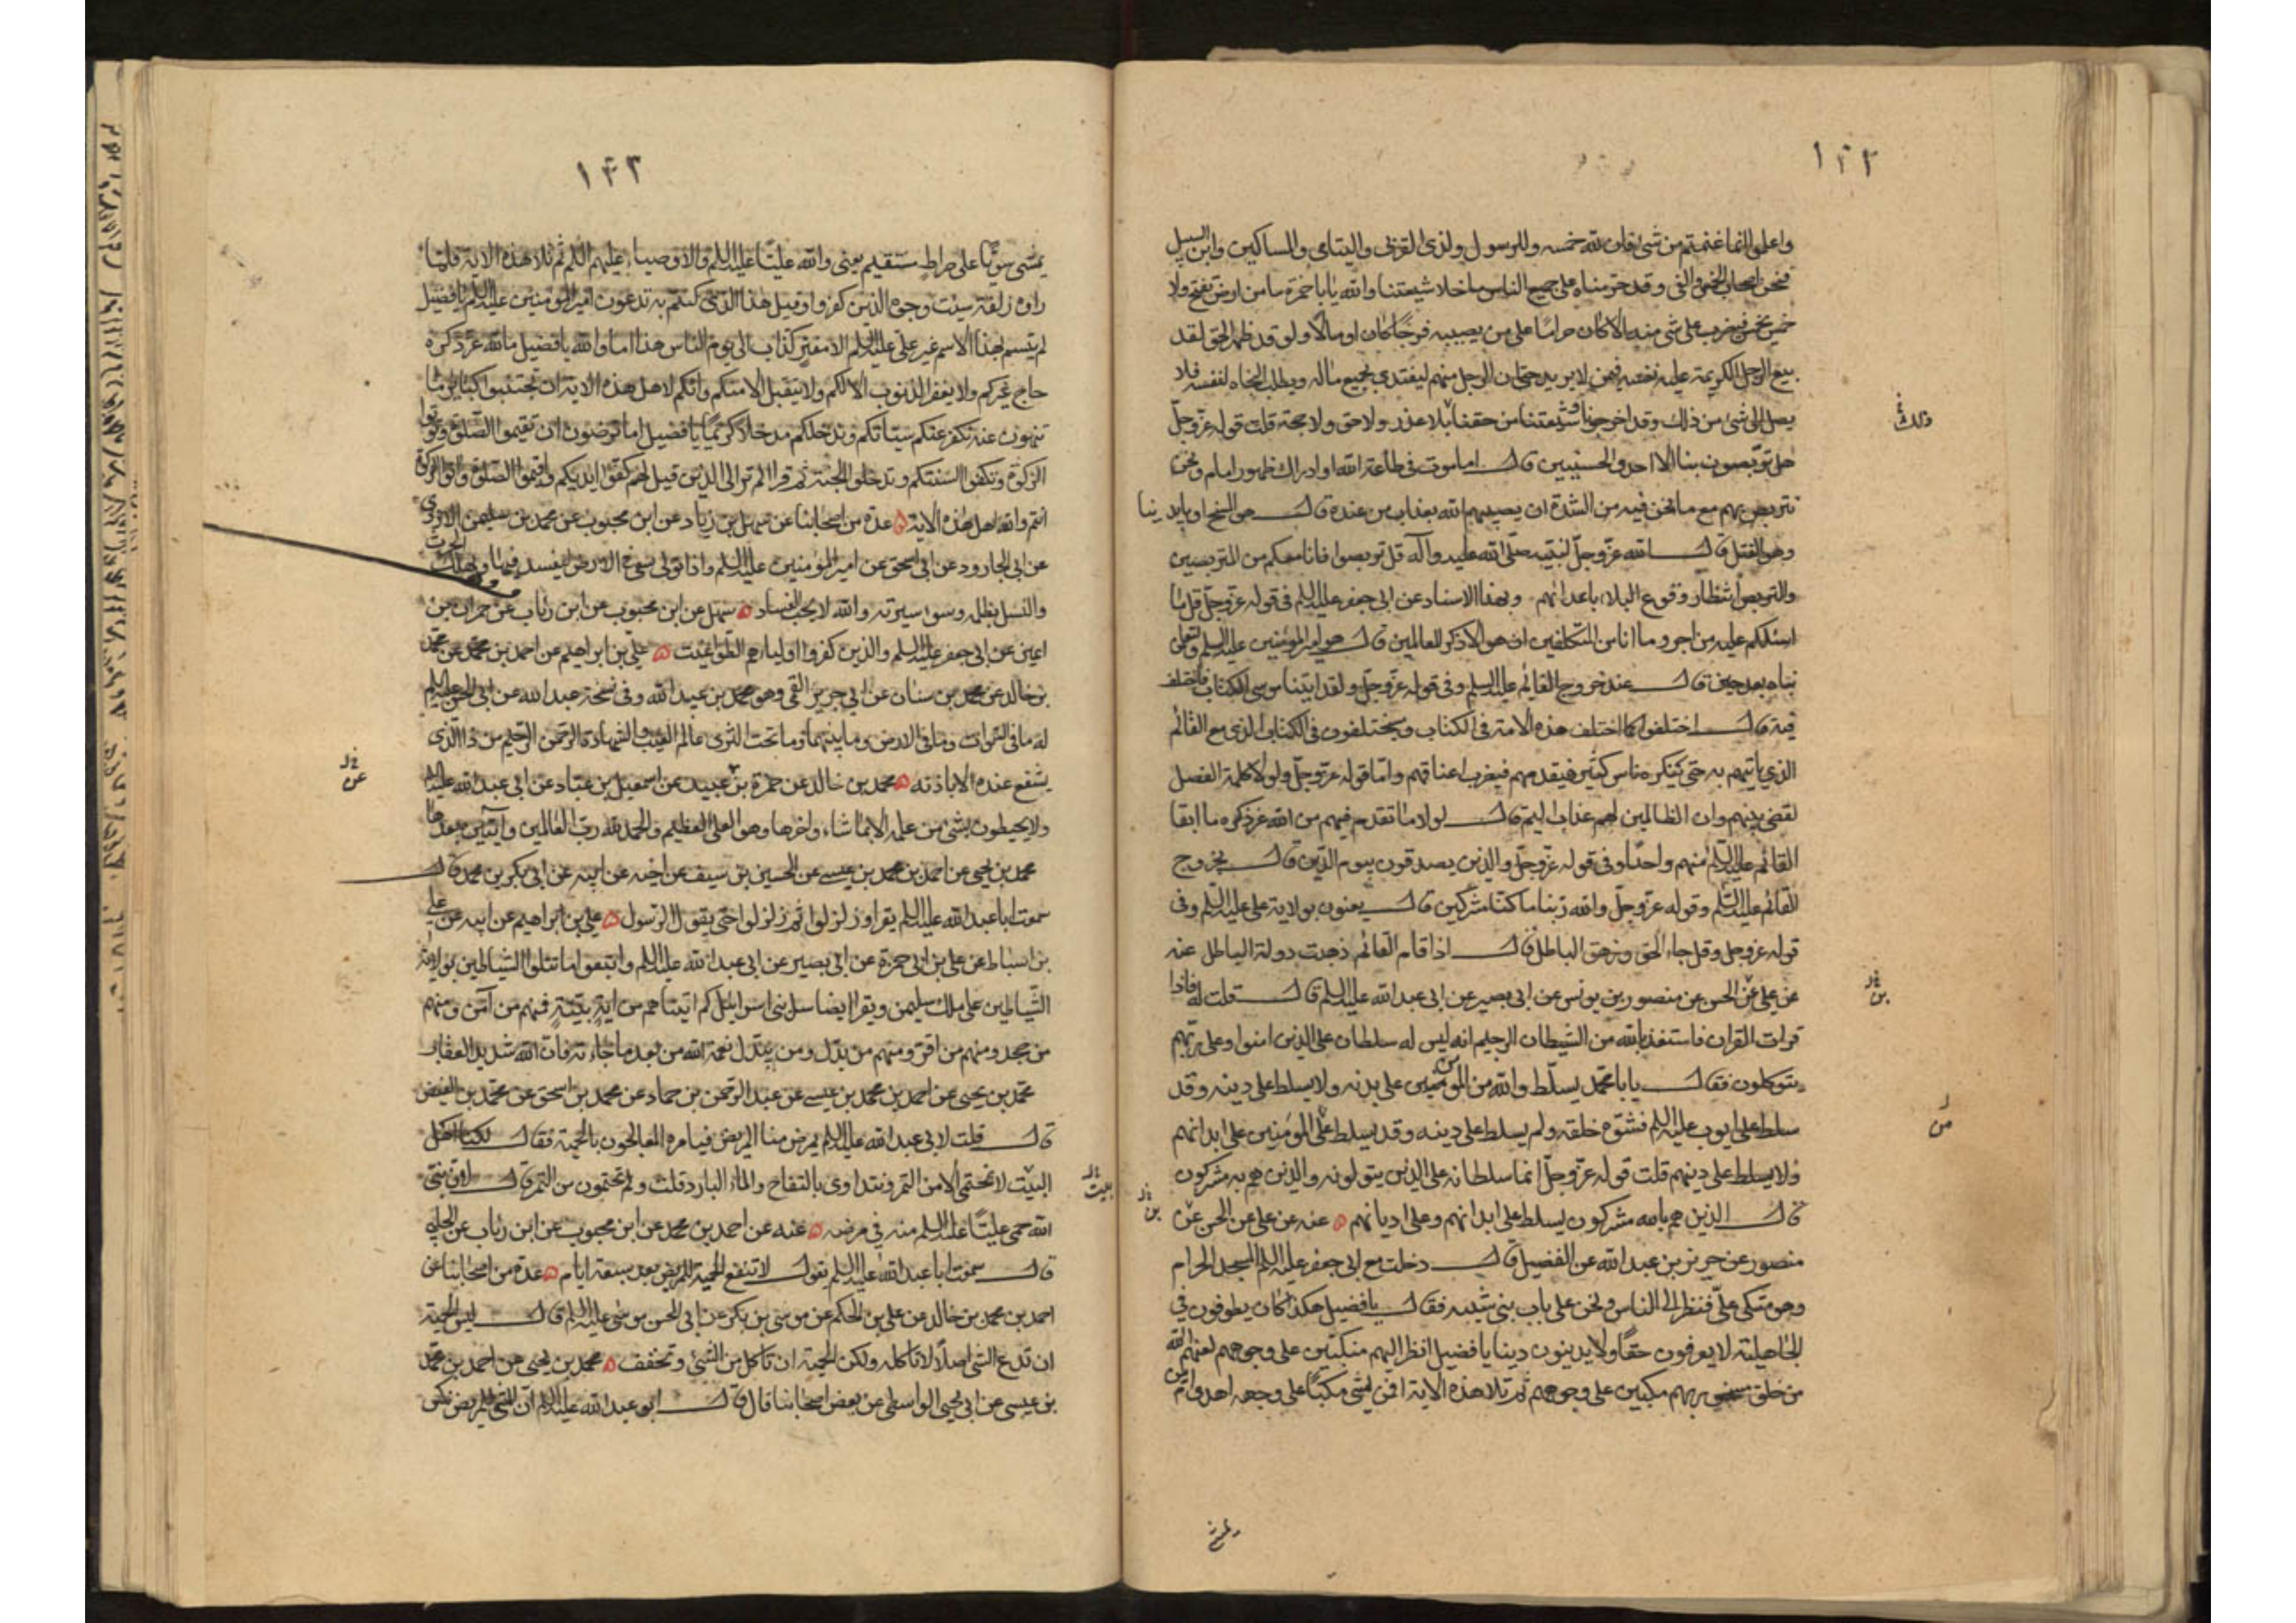 ١٤٢
واعلموا انما غنمتم من شئ فان لله خمسه وللرسول ولذى القربى واليتامى والمساكين وابن السبيل
فنحن اصحاب الخمس والفئ وقد حرمناه على جميع الناس ما خلا شيعتنا والله يا با حمزة ما من ارض تفتح ولا
خمس يخمس فيضرب على شئ منه الا كان حراما على من يصيبه فرجا كان او مالا ولو قد ظهر الحق لقد
بيع الرجل الكريمة عليه نفسه فيمن لا يريد حتى ان الرجل منهم ليفتدى بجميع ماله ويطلب النجاة لنفسه فلا
يصل الى شئ من ذلك وقد اخرجونا وشيعتنا من حقنا بلا عذر ولا حق ولا حجة قلت قوله عزوجل
هل تربصون بنا الا احدى الحسنيين قال اما موت فى طاعة الله او ادراك ظهور امام ونحن
نتربص بهم مع ما نحن فيه من الشدة ان يصيبهم الله بعذاب من عنده قال هو المسخ او بايدينا
وهو القتل قال الله عزوجل لنبيه صلى الله عليه وآله قل تربصوا فانا معكم من المتربصين
والتربص انتظار وقوع البلاء باعدائهم وبهذا الاسناد عن ابى جعفر عليه السلم فى قوله عزوجل قل ما
اسئلكم عليه من اجر وما انا من المتكلفين ان هو الا ذكر للعالمين قال هو امير المؤمنين عليه السلم ولتعلمن
نباه بعد حين قال عند خروج القائم عليه السلم وفى قوله عزوجل ولقد اتينا موسى الكتاب فاختلف
فيه قال اختلفوا كما اختلف هذه الامة فى الكتاب وسيختلفون فى الكتاب الذى مع القائم
الذى ياتيهم به حتى ينكره ناس كثير فيقدمهم فيضرب اعناقهم واما قوله عزوجل ولولا كلمة الفصل
لقضى بينهم وان الظالمين لهم عذاب اليم قال لولا ما تقدم فيهم من الله عز ذكره ما ابقا
القائم عليه السلم منهم واحدا وفى قوله عزوجل والذين يصدقون بيوم الدين قال بخروج
القائم عليه السلم وقوله عزوجل والله ربنا ما كنا مشركين قال يعنون بولاية على عليه السلم وفى
قوله عزوجل وقل جاء الحق وزهق الباطل قال اذا قام القائم ذهبت دولة الباطل عنه
عن على عن الحسن عن منصور بن يونس عن ابى بصير عن ابى عبدالله عليه السلم قال قلت له فاذا
قرات القران فاستعذ بالله من الشيطان الرجيم انه ليس له سلطان على الذين امنوا وعلى ربهم
يتوكلون فقال يا با محمد يسلط والله من المؤمنين على بدنه ولا يسلط على دينه وقد
سلط على ايوب عليه السلم فشوه خلقه ولم يسلط على دينه وقد يسلط على المؤمنين على ابدانهم
ولا يسلط على دينهم قلت قوله عزوجل انما سلطانه على الذين يتولونه والذين هم به مشركون
قال الذين هم بالله مشركون يسلط على ابدانهم وعلى اديانهم ٥ عنه عن على عن الحسن عن
منصور عن حريز بن عبدالله عن الفضيل قال دخلت مع ابى جعفر عليه السلم المسجد الحرام
وهو متكى على فنظر الى الناس ونحن على باب بنى شيبه فقال يا فضيل هكذا كان يطوفون فى
الجاهلية لا يعرفون حقا ولا يدينون دينا يا فضيل انظر اليهم منكبين على وجوههم لعنهم الله
من خلق بهم مكبين على وجوههم ثم تلا هذه الاية افمن يمشى مكبا على وجهه اهدى امن
ذلك
بن
من
بن
١٤٣
يمشى سويا على صراط مستقيم يعنى والله عليا عليه السلم والاوصياء عليهم السلم ثم تلا هذه الاية فلما
راوه زلفة سيئت وجوه الذين كفروا وقيل هذا الذى كنتم به تدعون امير المؤمنين عليه السلم يا فضيل
لم يتسم بهذا الاسم غير على عليه السلم الا مفتر كذاب الى يوم الناس هذا اما والله يا فضيل ما لله عز ذكره
حاج غيركم ولا يغفر الذنوب الا لكم ولا يتقبل الا منكم وانكم لاهل هذه الاية ان تجتنبوا كبائر ما
تنهون عنه نكفر عنكم سيئاتكم وندخلكم مدخلا كريما يا فضيل اما ترضون ان تقيموا الصلوة وتوتوا
الزكوة وتكفوا السنتكم وتدخلوا الجنة ثم قرا الم تر الى الذين قيل لهم كفوا ايديكم واقيموا الصلوة واتوا الزكوة
انتم والله اهل هذه الاية ٥ عدة من اصحابنا عن سهل بن زياد عن ابن محبوب عن محمد بن سليمن الازدى
عن ابى الجارود عن ابى اسحق عن امير المؤمنين عليه السلم واذا تولى سعى فى الارض ليفسد فيها ويهلك الحرث
والنسل بظلمه وسوء سيرته والله لا يحب الفساد ٥ سهل عن ابن محبوب عن ابن رئاب عن حمران بن
اعين عن ابى جعفر عليه السلم والذين كفروا اوليائهم الطواغيت ٥ على بن ابراهيم عن احمد بن محمد عن محمد
بن خالد عن محمد بن سنان عن ابى جرير القمى وهو محمد بن عبيد الله وفى نسخة عبد الله عن ابى الحسن عليه السلم
له ما فى السموات وما فى الارض وما بينهما وما تحت الثرى عالم الغيب والشهادة الرحمن الرحيم من ذا الذى
يشفع عنده الا باذنه ٥ محمد بن خالد عن حمزة بن عبيد عن اسمعيل بن عباد عن ابى عبدالله عليه السلم
ولا يحيطون بشئ من علمه الا بما شاء واخرها وهو العلى العظيم والحمد لله رب العالمين وايتين بعدها
محمد بن يحيى عن احمد بن محمد بن عيسى عن الحسين بن سيف عن اخيه عن ابيه عن ابى بكر بن محمد قال
سمعت ابا عبدالله عليه السلم يقرا وزلزلوا ثم زلزلوا حتى يقول الرسول ٥ على بن ابراهيم عن ابيه عن على
بن اسباط عن على بن ابى حمزة عن ابى بصير عن ابى عبدالله عليه السلم واتبعوا ما تتلوا الشياطين بولاية
الشياطين على ملك سليمن ويقرا ايضا سل بنى اسرائيل كم اتيناهم من اية بينة فمنهم من آمن ومنهم
من جحد ومنهم من اقر ومنهم من بدل ومن يبدل نعمة الله من بعد ما جاءته فان الله شديد العقاب
محمد بن يحيى عن احمد بن محمد بن عيسى عن عبد الرحمن بن حماد عن محمد بن اسحق عن محمد بن الفيض
قال قلت لابى عبدالله عليه السلم يمرض منا المريض فيامره المعالجون بالحمية فقال لكنا اهل
البيت لا نحتمى الا من التمر ونتداوى بالتفاح والماء البارد قلت ولم تحتمون من التمر قال لان نبى
الله حمى عليا عليه السلم منه فى مرضه ٥ عنه عن احمد بن محمد عن ابن محبوب عن ابن رئاب عن الحلبى
قال سمعت ابا عبدالله عليه السلم يقول لا تنفع الحمية للمريض بعد سبعة ايام ٥ عدة من اصحابنا عن
احمد بن محمد بن خالد عن على بن الحكم عن موسى بن بكر عن ابى الحسن موسى عليه السلم قال ليس الحمية
ان تدع الشئ اصلا لا تاكله ولكن الحمية ان تاكل من الشئ وتخفف ٥ محمد بن يحيى عن احمد بن محمد
بن عيسى عن ابى يحيى الواسطى عن بعض اصحابنا قال قال ابو عبدالله عليه السلم ان المشى للمريض نكس
عن
بيت